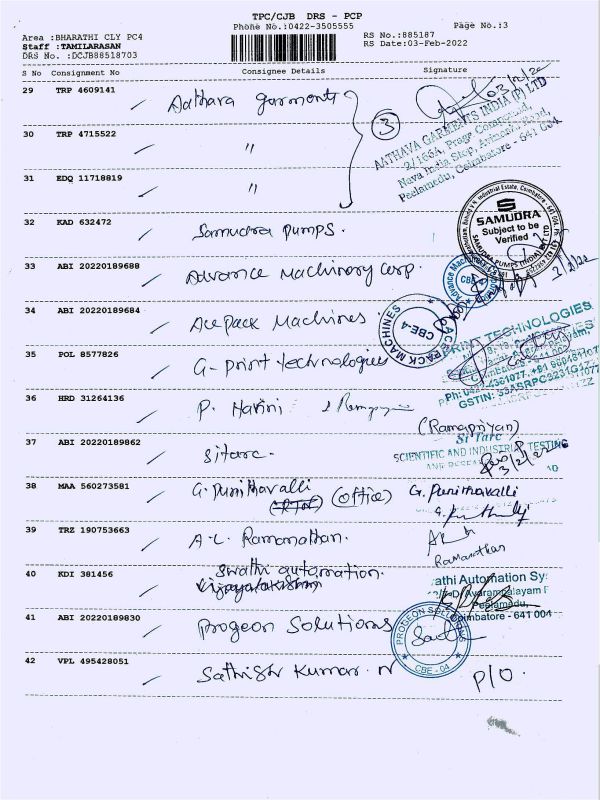 TPC/CJB DRS - PCP
Phone No.:0422-3505555
Page No.:3
Area :BHARATHI CLY PC4
Staff :TAMILARASAN
DRS No. :DCJB88518703
RS No.:885187
RS Date:03-Feb-2022
S No Consignment No Consignee Details Signature
29 TRP 4609141 Aathava garments
3
AATHAVA GARMENTS INDIA (P) LTD
2/166A, Pragr Compound,
Nava India Stop, Avinashi Road,
Peelamedu, Coimbatore - 641 004
30 TRP 4715522 "
31 EDQ 11718819 "
32 KAD 632472 Samudra Pumps.
S
SAMUDRA
Subject to be
Verified
SAMUDRA PUMPS (INDIA) PVT LTD
33 ABI 20220189688 Advance Machinery Corp.
CBE-4
34 ABI 20220189684 Ace Pack Machines.
ACE PACK MACHINES
CBE-4
35 POL 8577826 G-print technologies
PRINT TECHNOLOGIES
36 HRD 31264136 P. Harini
(Ramapriyan)
37 ABI 20220189862 Sitarc.
Si Tarc
SCIENTIFIC AND INDUSTRIAL TESTING
38 MAA 560273581 G. Punithavalli
(office)
G. Punithavalli
39 TRZ 190753663 A.L. Ramanathan.
Ramanathan
40 KDI 381456 Swathi automation.
athi Automation Sy
Peelamedu,
Coimbatore - 641 004
41 ABI 20220189830 Progeon Solutions
PRODEON SOLUTIONS
CBE - 04
42 VPL 495428051 Sathish Kumar. N
P/O.